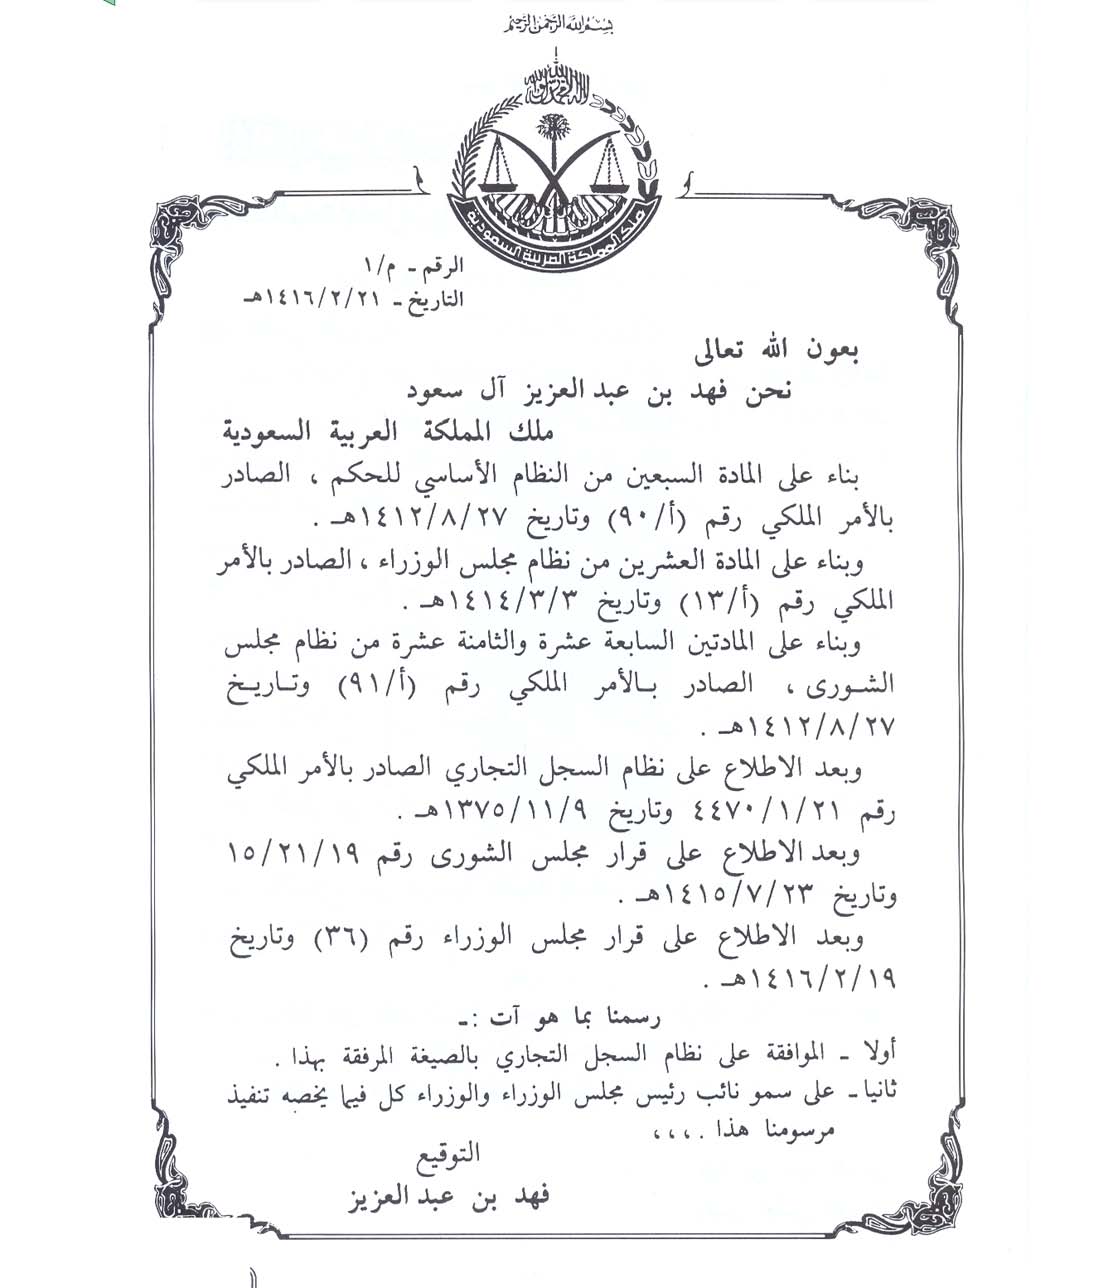 بسم الله الرحمن الرحيم
لا إله إلا الله محمد رسول الله
ملك المملكة العربية السعودية
الرقم ـ م/١
التاريخ ـ ١٤١٦/٢/٢١هـ
بعون الله تعالى
نحن فهد بن عبد العزيز آل سعود
ملك المملكة العربية السعودية
بناء على المادة السبعين من النظام الأساسي للحكم ، الصادر
بالأمر الملكي رقم (أ/٩٠) وتاريخ ١٤١٢/٨/٢٧هـ .
وبناء على المادة العشرين من نظام مجلس الوزراء ، الصادر بالأمر
الملكي رقم (أ/١٣) وتاريخ ١٤١٤/٣/٣هـ .
وبناء على المادتين السابعة عشرة والثامنة عشرة من نظام مجلس
الشورى ، الصادر بالأمر الملكي رقم (أ/٩١) وتاريخ
١٤١٢/٨/٢٧هـ .
وبعد الاطلاع على نظام السجل التجاري الصادر بالأمر الملكي
رقم ٤٤٧٠/١/٢١ وتاريخ ١٣٧٥/١١/٩هـ .
وبعد الاطلاع على قرار مجلس الشورى رقم ١٥/٢١/١٩
وتاريخ ١٤١٥/٧/٢٣هـ .
وبعد الاطلاع على قرار مجلس الوزراء رقم (٣٦) وتاريخ
١٤١٦/٢/١٩هـ .
رسمنا بما هو آت :ـ
أولا ـ الموافقة على نظام السجل التجاري بالصيغة المرفقة بهذا .
ثانيا ـ على سمو نائب رئيس مجلس الوزراء والوزراء كل فيما يخصه تنفيذ
مرسومنا هذا .،،،
التوقيع
فهد بن عبد العزيز